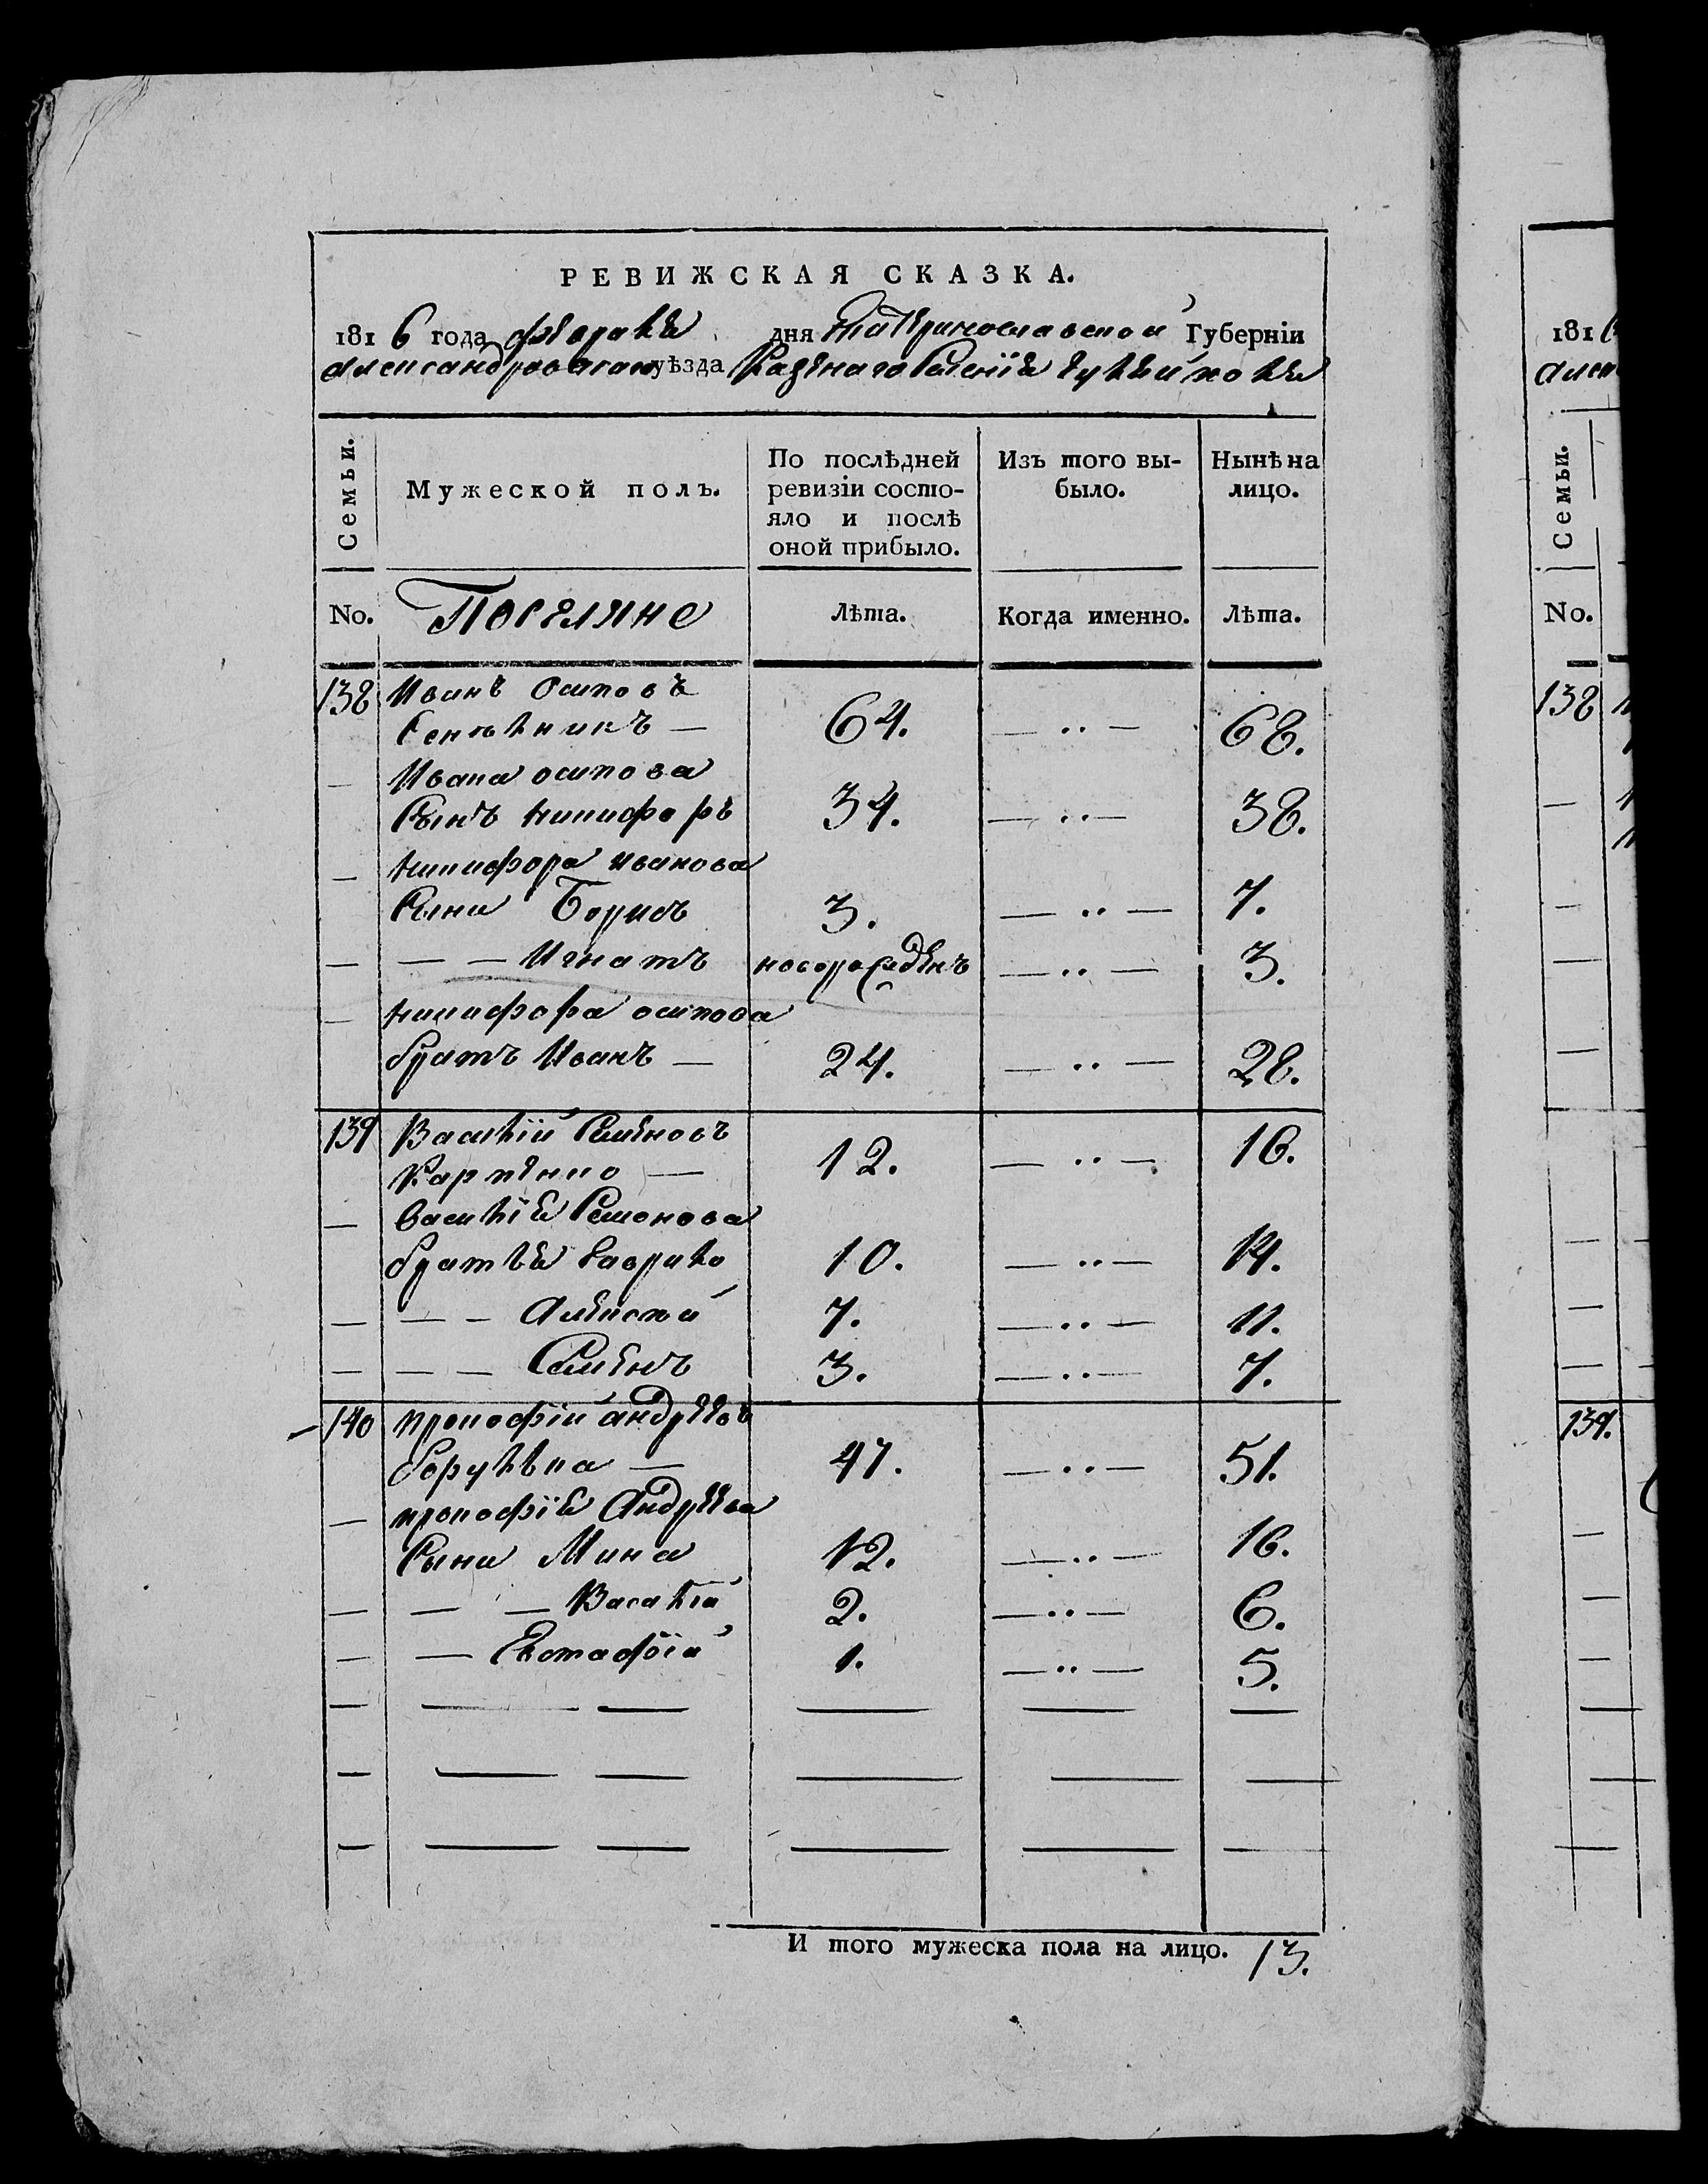 РЕВИЖСКАЯ СКАЗКА.
1816 года февраля дня Екатеринославской Губерніи
александровского уѣзда Казенаго Селенія
Семьи.
Мужеской полъ.
По послѣдней ревизіи состо-
яло и послѣ оной прибыло.
Изъ того вы-
было.
Нынѣ на лицо.
No. Поселяне Лѣта. Когда именно. Лѣта.
138 Иванъ Осиповъ
— 64. — ·· — 68.
— Ивана осипова
Сынъ никифоръ 34. — ·· — 38.
— никифора иванова
Сыни Борисъ 3. — ·· — 7.
— — — Игнатъ новорожденъ — ·· — 3.
— никифора осипова
братъ Иванъ — 24. — ·· — 28.
139 Василій Семеновъ
Карпенко — 12. — ·· — 16.
— василія Семенова
братья гаврило 10. — ·· — 14.
— — — Алексей 7. — ·· — 11.
— — — Семенъ 3. — ·· — 7.
140 прокофій андреевъ
— 47. — ·· — 51.
— прокофія Андреева
Сыни Мина 12. — ·· — 16.
— — — Василій 2. — ·· — 6.
— — Евстафій 1. — ·· — 5.
И того мужеска пола на лицо. 13.
181
Семьи.
No.
138
139.